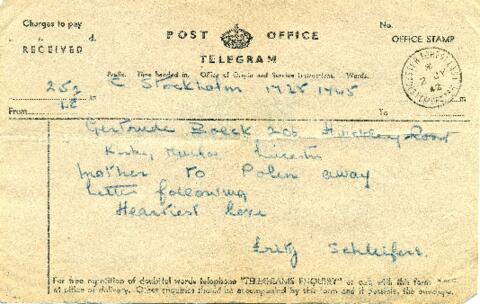 Charges to pay
RECEIVED
POST OFFICE
TELEGRAM
No.
OFFICE STAMP
Prefix. Time handed in. Office of Origin and Service Instructions. Words.
252 C Stockholm 1725 1945
From To
2 JY
42
Gertrude 206 Hinckley Road
Kirby Leicester
mother to Polen away
letter following
Heartiest love
Fritz Schleifers
For free repetition of doubtful words telephone "TELEGRAMS ENQUIRY" or call, with this form
at office of delivery. Other enquiries should be accompanied by this form and if possible, the envelope.